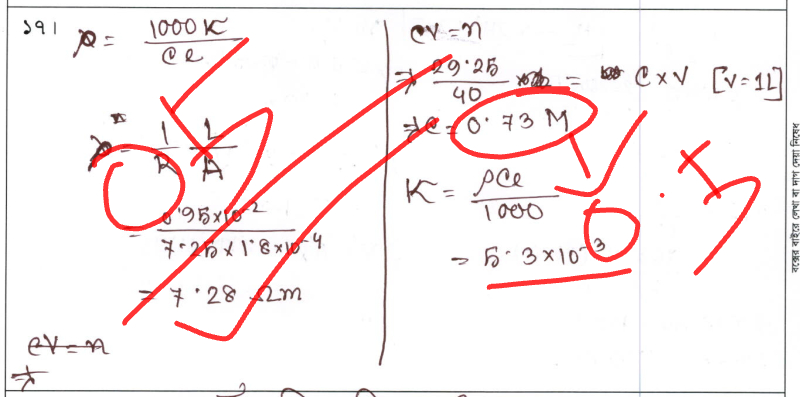 ১৭।
ρ = 1000 K / Ce
ρ = 1/K × L/A
= 0.95×10⁻² / 7.25×1.8×10⁻⁴
= 7.28 Ωm
cV = n
⇒
cV = n
⇒ 29.25 / 40 = C × V [V = 1L]
⇒ C = 0.73 M
K = ρCe / 1000
= 5.3×10⁻³
0.5
বক্সের বাইরে লেখা বা দাগ দেয়া নিষেধ